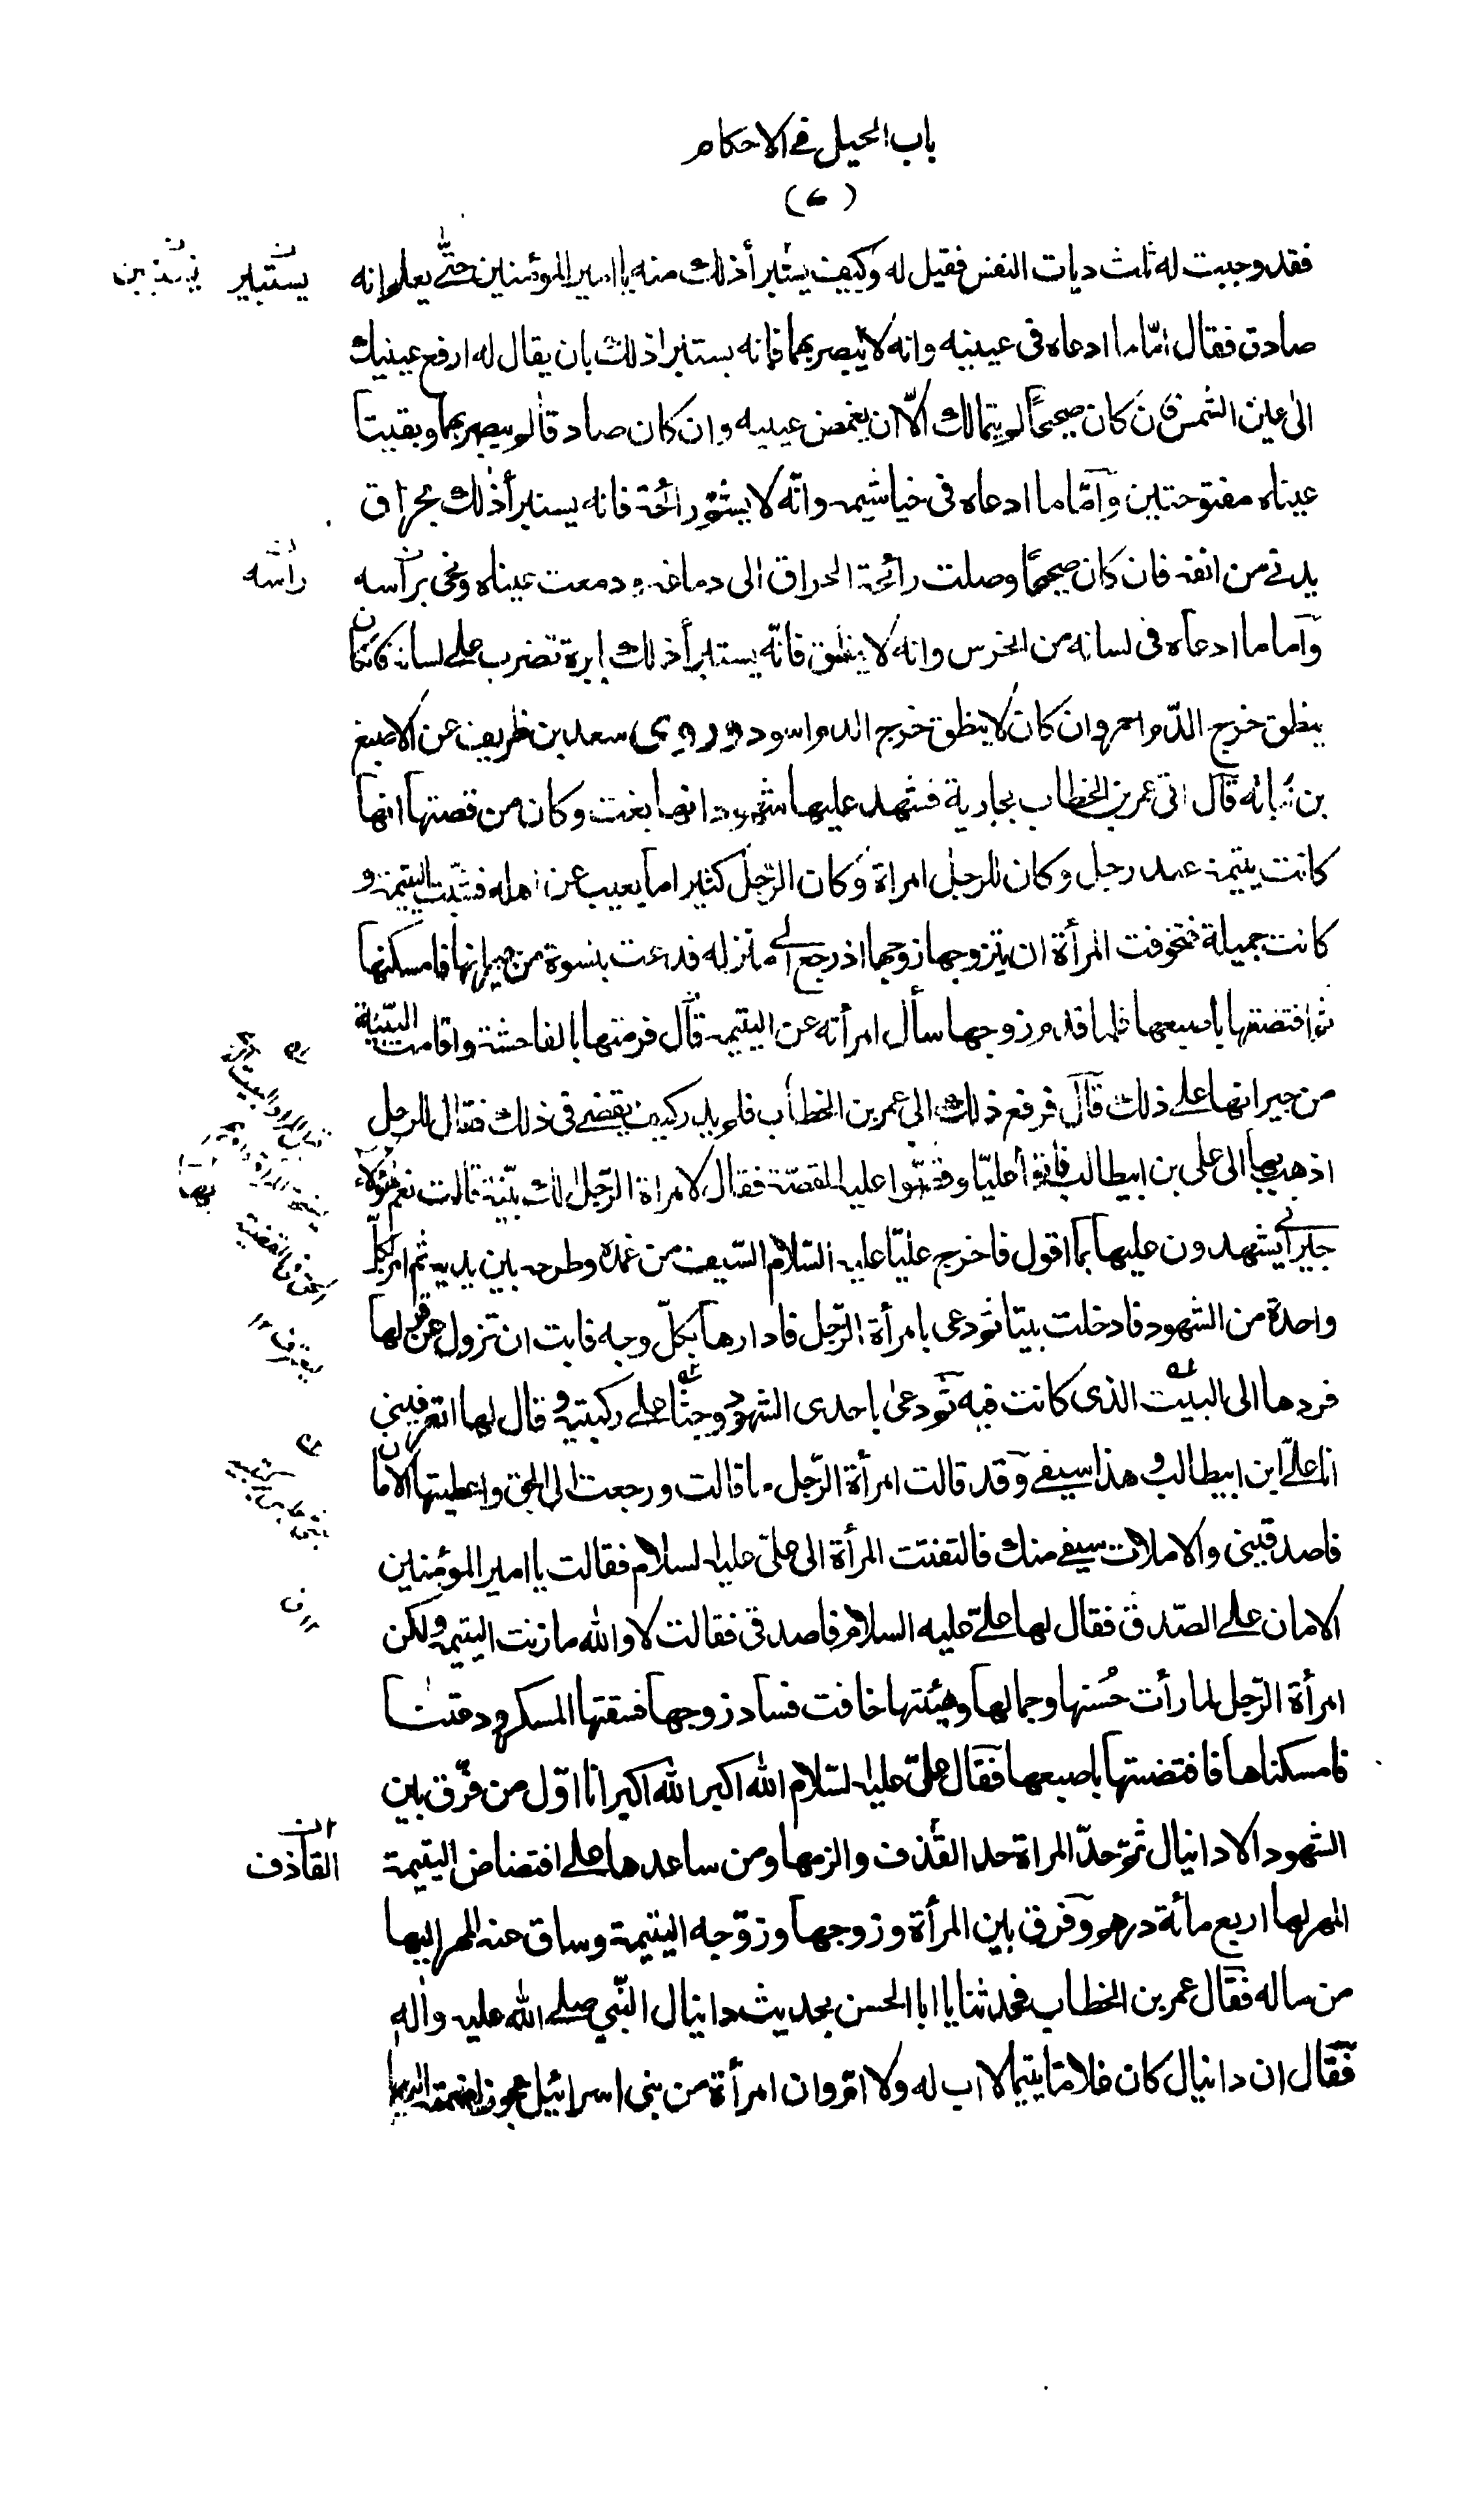 باب الحيل في الاحكام
فقد وجبت له ثلث ديات النفس فقيل له وكيف يستبرأ ذلك منه يا امير المؤمنين حتّى يعلم انه
صادق فقال امّا ما ادعاه فى عينيه وانه لا يبصر بهما فانه يستبرا ذلك بان يقال له ارفع عينيك
الى عين الشمس فان كان صحيحاً لم يتمالك الّا ان يغمض عينيه وان كان صادقا لم يبصر بهما وبقيتا
عيناه مفتوحتين وامّا ما ادعاه فى خياشيمه وانّه لا يشمّ رائحة فانه يستبرأ ذلك بحراق
يدنى من انفه فان كان صحيحًا وصلت رائحة الحراق الى دماغه ودمعت عيناه ونحى براسه
راسه
وامّا ما ادعاه فى لسانه من الخرس وانه لا ينطق فانّه يستبرأ ذلك بابرة تضرب على لسانه فان كان
ينطق خرج الدّم احمر وان كان لا ينطق خرج الدم اسود وروى سعد بن طريف عن الاصبغ
بن نباته قال اتى عمر بن الخطاب بجارية فشهد عليها شهود انها بغت وكان من قصتها انها
كانت يتيمة عند رجل وكان للرجل امراة وكان الرّجل كثيرا ما يغيب عن اهله فشبّت اليتيمة و
كانت جميلة فتخوفت المرأة ان يتزوجها زوجها اذ رجع الى منزله فدعت بنسوة من جيرانها فامسكنها
ثم افتضتها باصبعها فلما قدم زوجها سأل امرأته عن اليتيمة قال فرمتها بالفاحشة واقامت البيّنة
من جيرانها على ذلك قال فرفع ذلك الى عمر بن الخطاب فلم يدر كيف يقضى فى ذلك فقال للرجل
اذهب بها الى على بن ابيطالب فاتوا عليّا وقصّوا عليه القصّة فقال لامراة الرّجل الك بيّنة قالت نعم هؤلاء
جيرانى يشهدون عليها بما اقول فاخرج علىّ عليه السّلام السّيف من غمده وطرحه بين يديه ثم امر بكلّ
واحدة من الشهود فادخلت بيتا ثم دعى بامرأة الرّجل فادارها بكلّ وجه فابت ان تزول عن قولها
فردها الى البيت الذى كانت فيه ثم دعى باحدى الشهود وجثا على ركبتيه وقال لها اتعرفينى
انا علىّ ابن ابيطالب وهذا سيفى وقد قالت امرأة الرّجل ما قالت ورجعت الى الحق واعطيتها الامان
فاصدقينى والا ملات سيفى منك فالتفتت المرأة الى علىّ عليه السلام فقالت يا امير المؤمنين
الامان على الصّدق فقال لها علىّ عليه السلام فاصدقى فقالت لا والله ما زنت اليتيمة ولكن
امرأة الرّجل لما رأت حُسنها وجمالها وهيئتها خافت فساد زوجها فسقتها المسكر ودعتنا
فامسكناها فافتضتها باصبعها فقال علىّ عليه السّلام الله اكبر الله اكبر انا اوّل من فرّق بين
الشهود الا دانيال ثم حدّ المراة حد القذف والزمها ومن ساعدها على افتضاض اليتيمة
القاذف
المهر لها اربع مائة درهم وفرق بين المرأة وزوجها وزوّجه اليتيمة وساق عنه المهر اليها
من ماله فقال عمر بن الخطاب فحدثنا يا ابا الحسن بحديث دانيال النّبي صلى الله عليه واله
فقال ان دانيال كان غلاما يتيما لا اب له ولا امّ وان امرأة من بنى اسرائيل عجوزا ضمته اليها